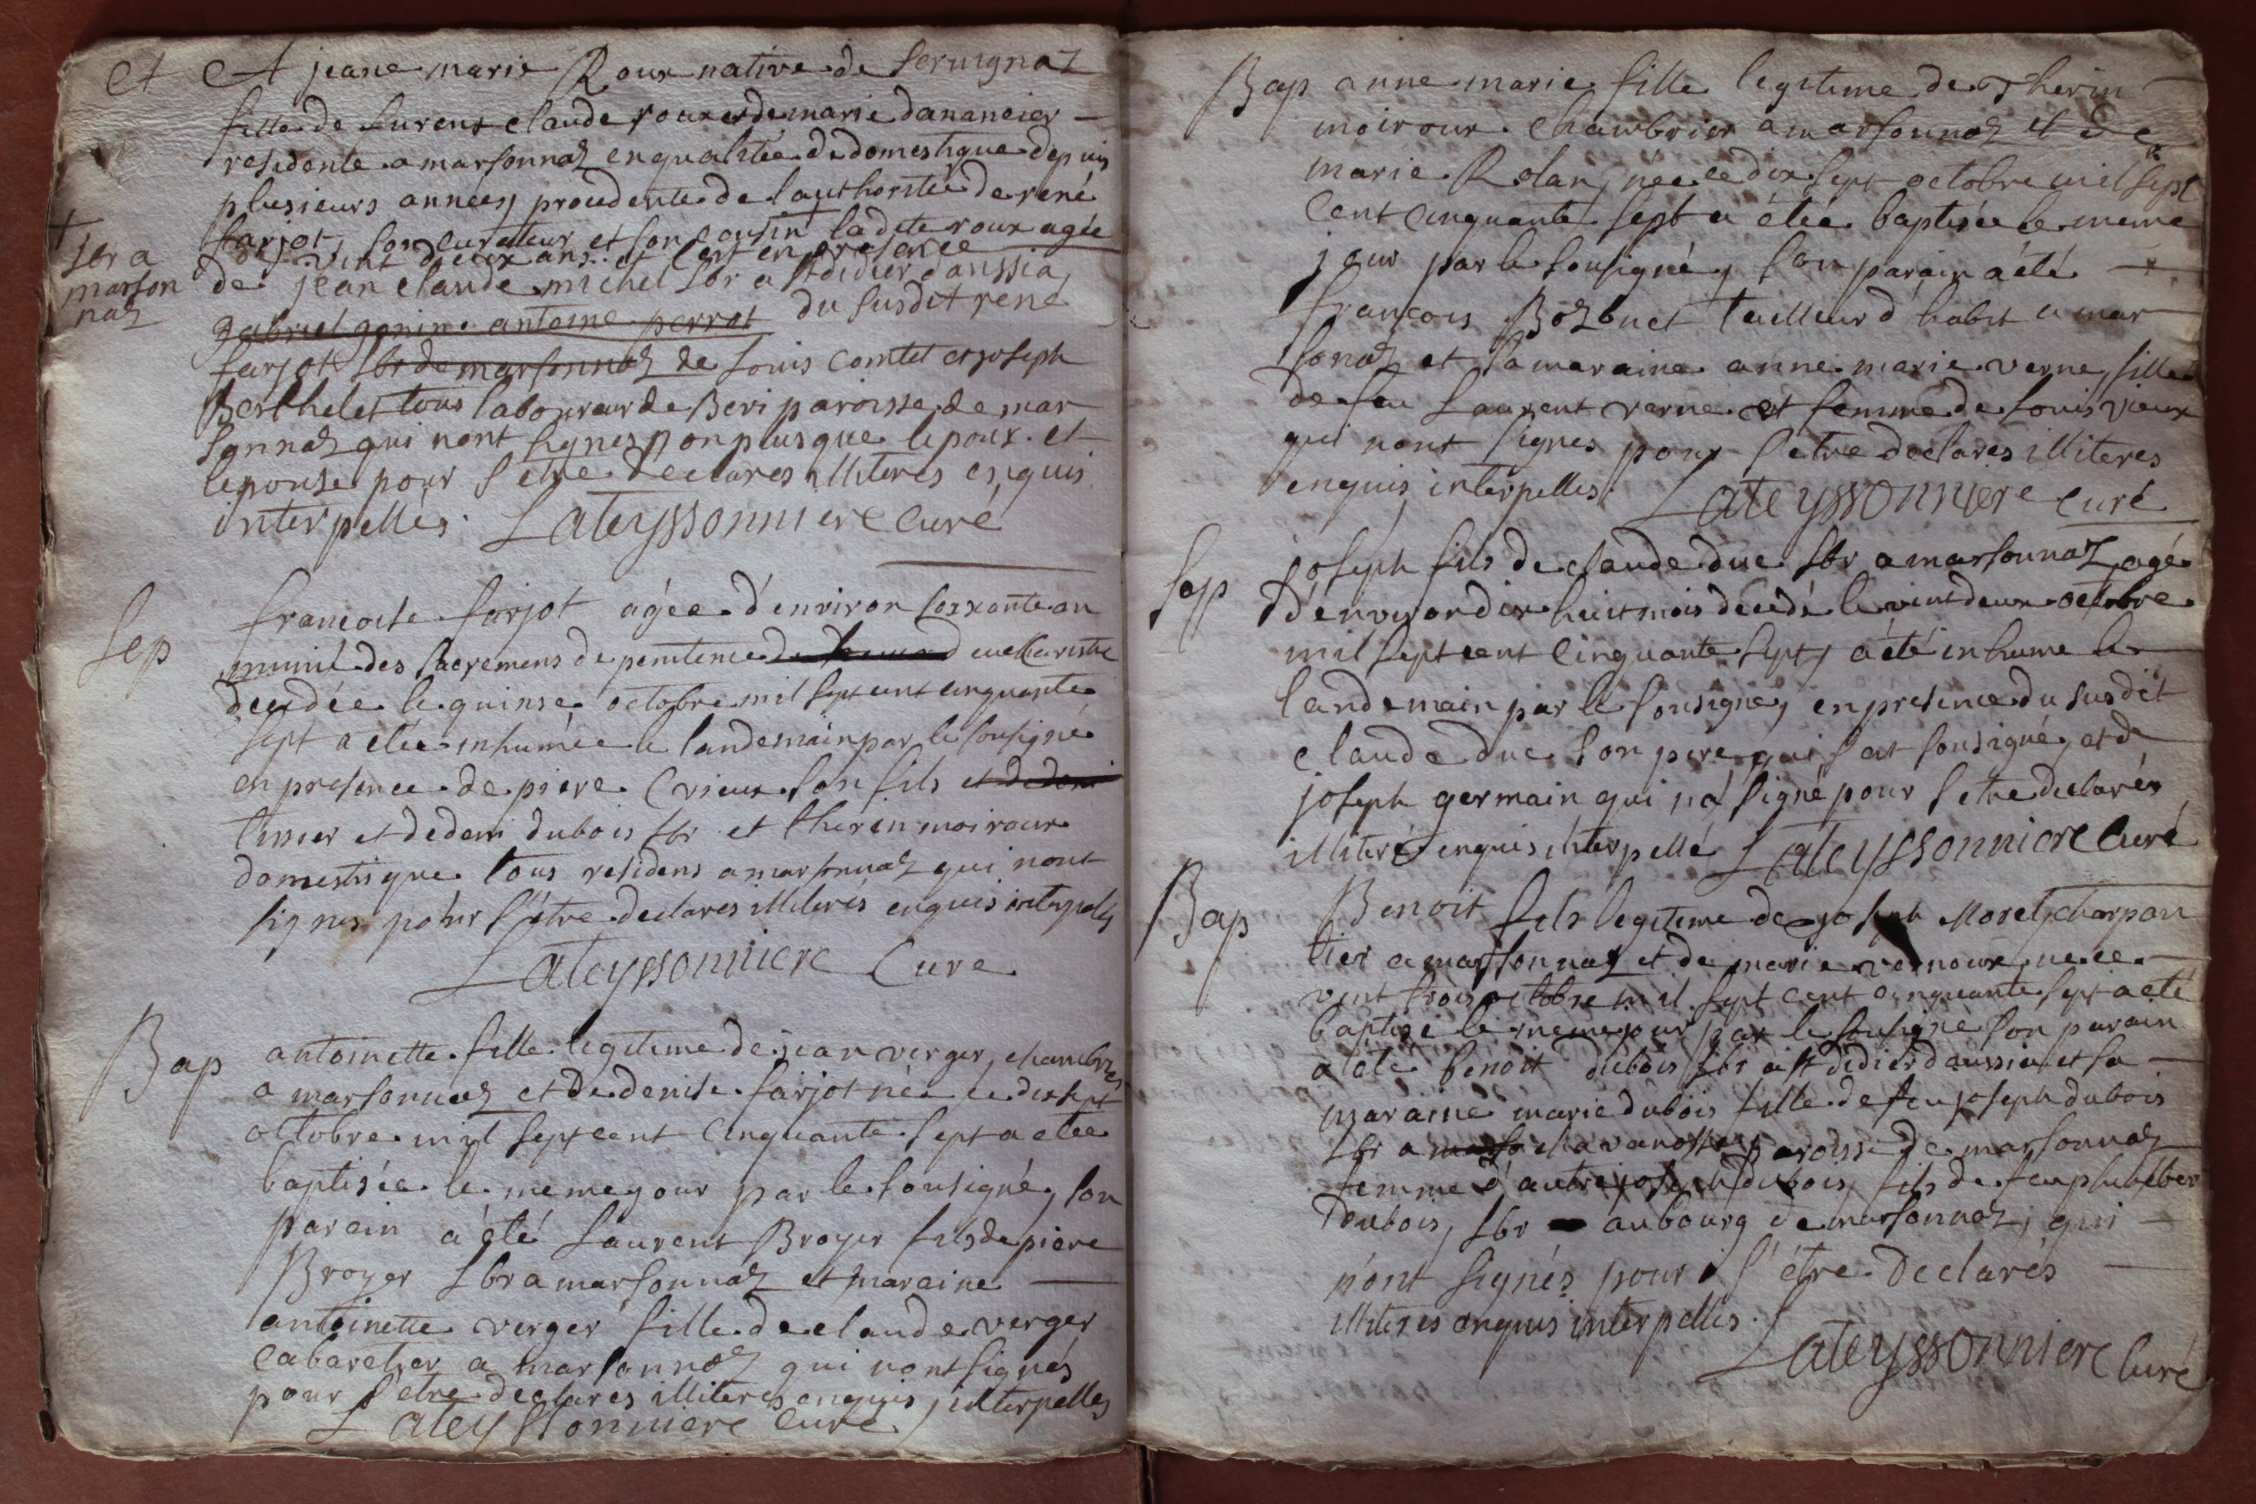 et et jeane marie Roux native de servignaz
fille de furent claude roux et de marie dananeier
residente a marsonnaz en qualitée de domestique depuis
plusieurs années procedente de l'authoritée de rené
farjot, son curateur et son cousin ladite roux agée
de vint deux ans. et c'est en presence
+ lbr a marson naz
de jean claude michel lbr a st didier d'aussia,
gabriel gonin antoine perrot du susdit rené
farjot lbr de marsonnaz de louis comtet et joseph
Berthelet tous laboureur de Beri paroisse de mar
sonnaz qui n'ont signes non plus que lepoux et
lepouse pour s'etre declares illiteres enquis
interpellés. Lateyssonniere curé
Sep
francoise farjot agée d'environ soixante an
munie des sacremens de penitence d'eucharistie
decedée le quinse octobre mil sept cent cinquante
sept a etée inhumée le landemain par le sousigné
en presence de piere Cvieux son fils et de deni
tissier et de deni dubois lbr et therin moiroux
domestique tous residens a marsonnaz qui n'ont
signes pour s'etre declares illiterés enquis interpelés
Lateyssonniere Curé
Bap
antoinette fille legitime de jean verger, chambrier
a marsonnaz et de denise farjot née ce dix sept
octobre mil sept cent cinquante sept a etée
baptisée le meme jour par le sousigné, son
parain a été Laurent Broyer fils de piere
Broyer lbr a marsonnaz et maraine
antoinette verger fille de claude verger
cabaretier a marsonnaz qui n'ont signés
pour s'etre declares illiteres enquis, interpellés
Lateyssonniere curé
Bap
anne marie fille legitime de therin
moiroux chambrier a marsonnaz et de
marie Rolan, née ce dix sept octobre mil sept
cent cinquante sept a étée baptisée le meme
jour par le sousigné, son parain a été
francois Bozonet tailleur d'habit a mar
sonaz et sa maraine anne marie verne, fille
de feu Laurent verne et femme de louis vieux
qui n'ont signes pour s'etre declares illiteres
enquis, interpellés. Lateyssonniere curé
Sep
joseph fils de claude duc lbr a marsonnaz, agé
d'environ dix huit mois decedé le vint deux octobre
mil sept cent cinquante sept, a été inhumé le
landemain par le sousigné, en presence du susdit
claude duc son pere qui s'est sousigné, et de
joseph germain qui n'a signé pour s'etre declarés
illiteré enquis interpellé Lateyssonniere Curé
Bap
Benoit fils legitime de joseph Morel, charpan
tier a marsonnaz et de marie vernoux né ce
vint trois octobre mil sept cent cinquante sept a eté
baptisé le meme jour par le sousigné son parain
a eté benoit dubois lbr a st didier d'aussia et sa
maraine marie dubois fille de feu joseph dubois
lbr a chavanosse paroisse de marsonnaz
femme d'autre joseph dubois, fils de feu philiber
dubois, lbr au bourg de marsonnaz, qui
n'ont signés pour s'être declarés
illiteres enquis interpellés.
Lateyssonniere Curé